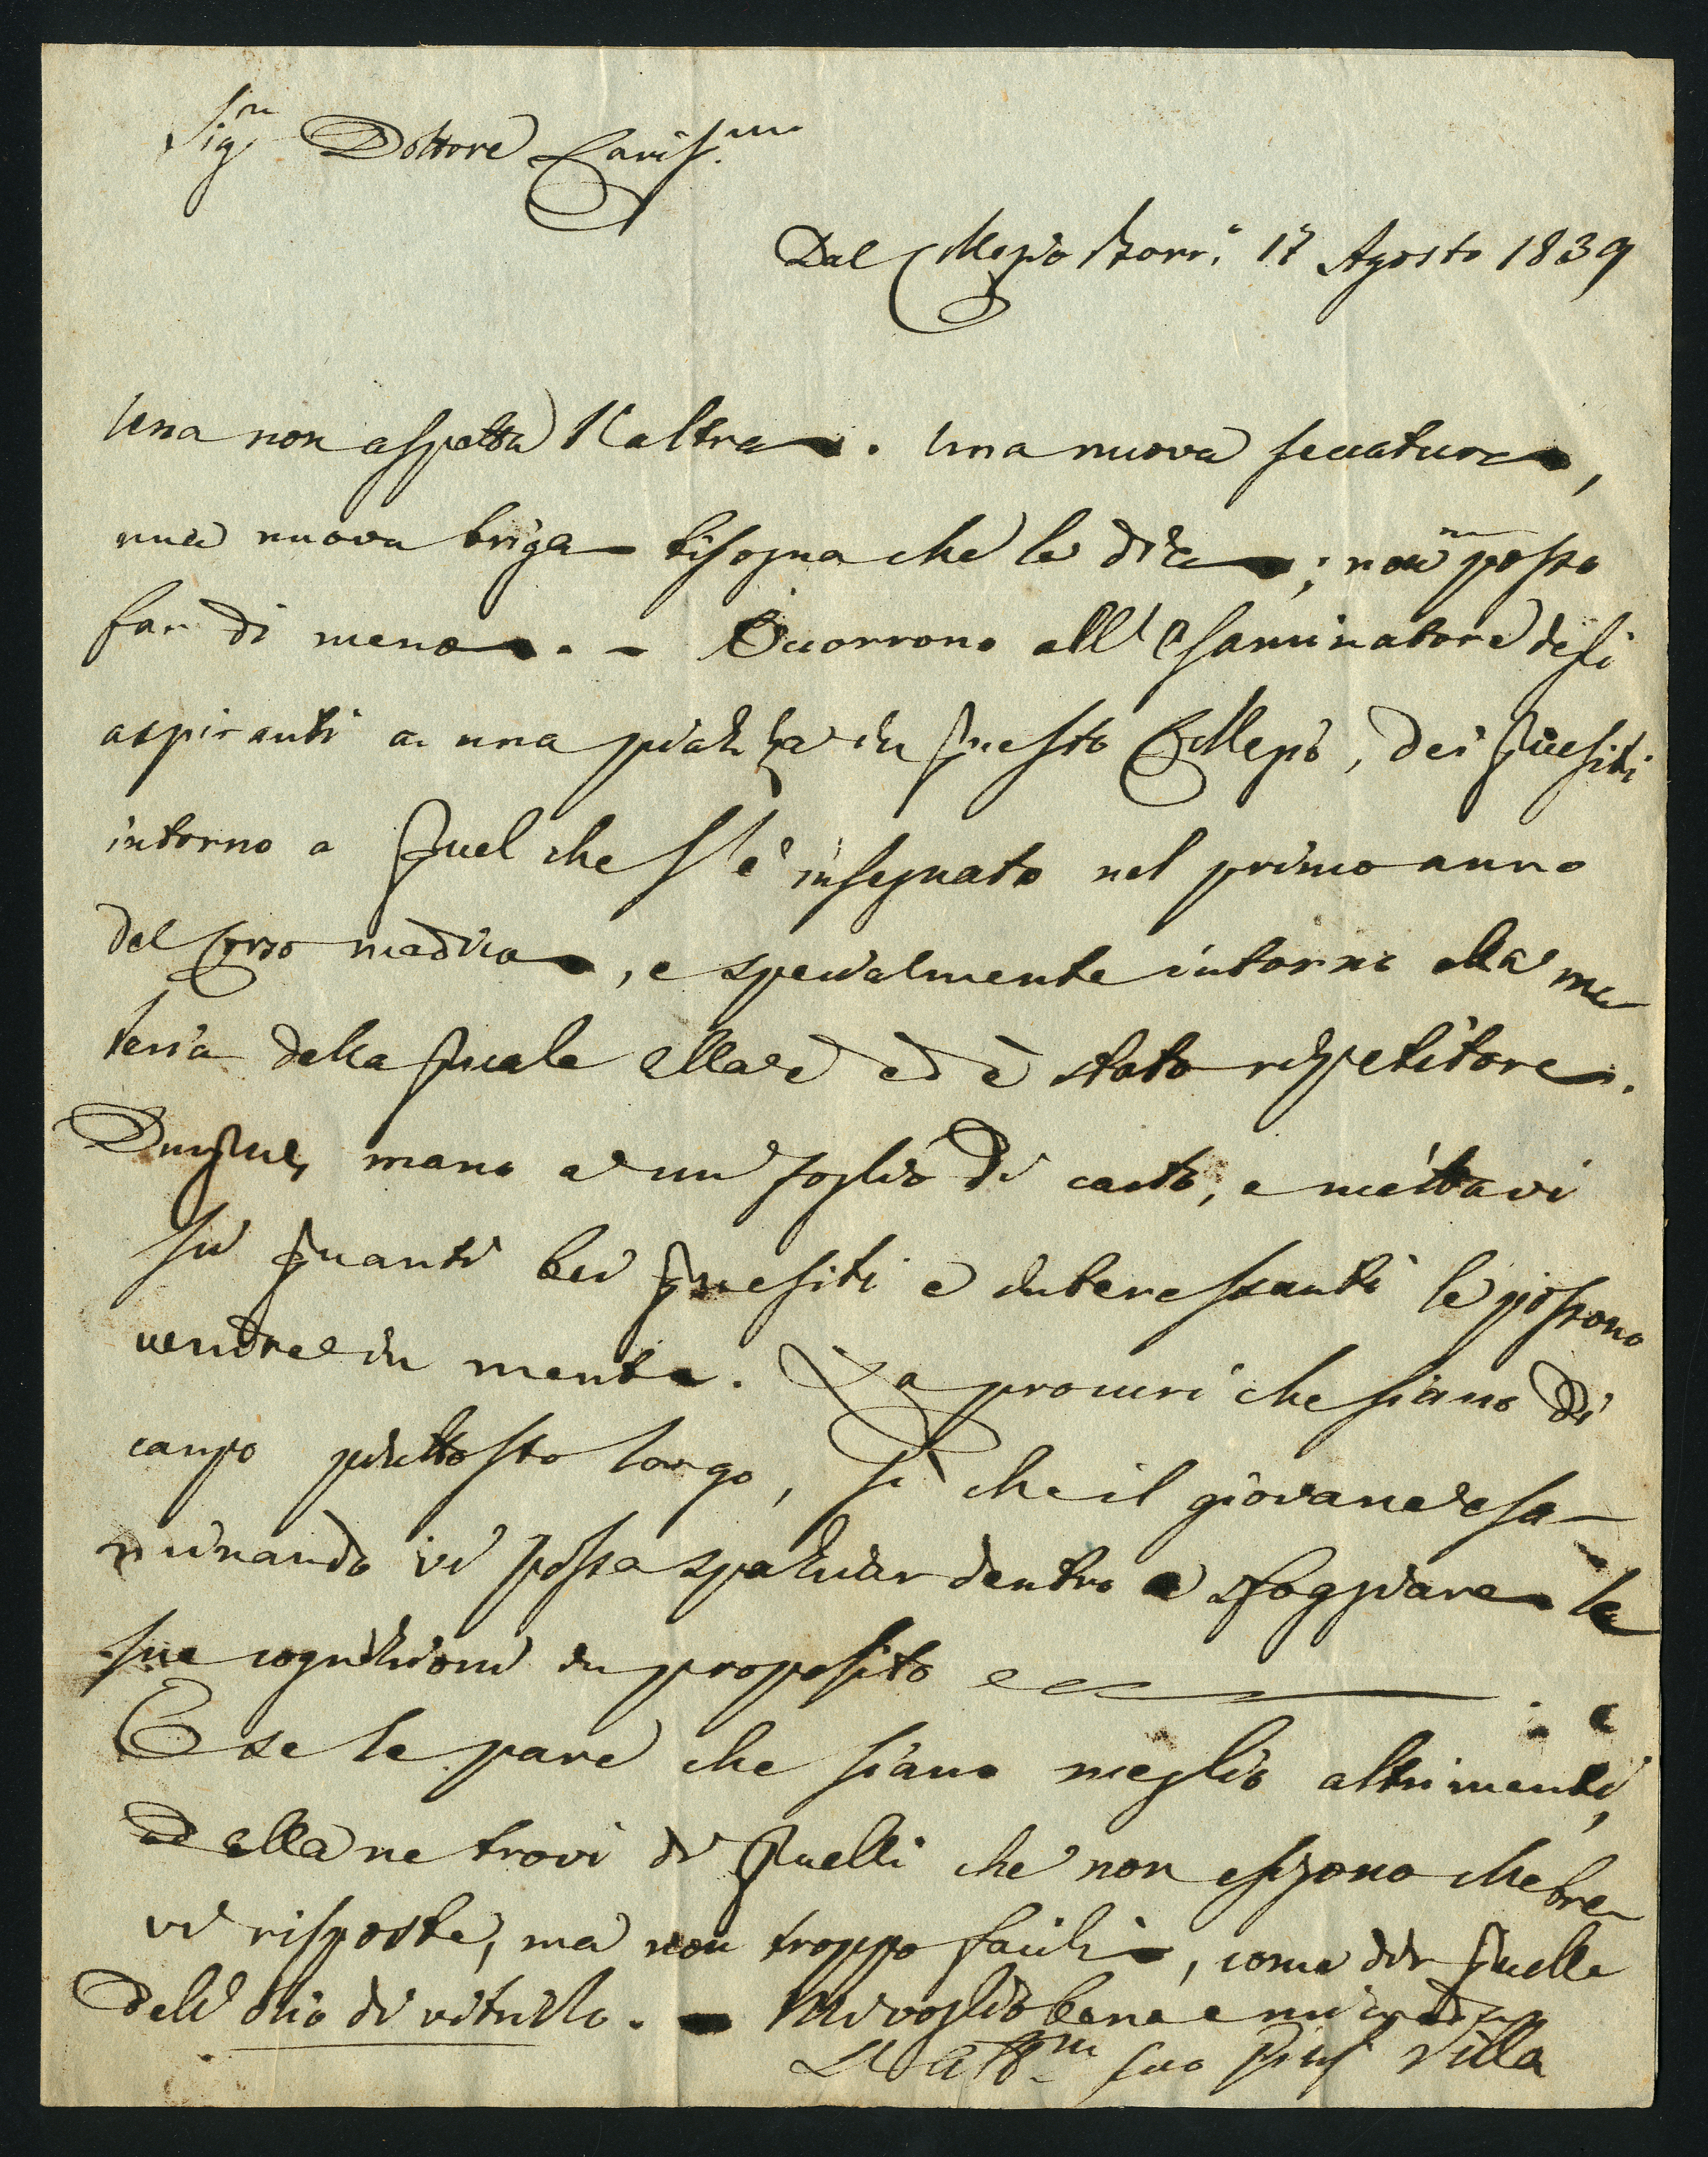 Sig.r Dottore Cariss.mo
Dal Collegio Borr.o 17 Agosto 1839
Una non aspetta l'altra. Una nuova seccatura,
una nuova briga bisogna che le dia; non posso
far di meno. - Occorrono all'esaminatore degli
aspiranti a una piazza in questo Collegio, dei quesiti
intorno a quel che s'è insegnato nel primo anno
del Corso medico, e specialmente intorno alla ma
teria della quale ella è ed è stato ripetitore.
Dunque, mano a un foglio di carta, e mettavi
su quanti bei quesiti e interessanti le possono
venire in mente. La procuri che siano di
campo piuttosto largo, sì che il giovane esa-
minando vi possa spaziar dentro e sfoggiare le
sue cognizioni in proposito ecc.
E se le pare che siano meglio altrimenti,
ed ella ne trovi di quelli che non esigono che bre
vi risposte, ma non troppo facili, come quelle
dell'olio di vitriolo. - Mi voglia bene e mi creda
L'aff.mo suo Villa